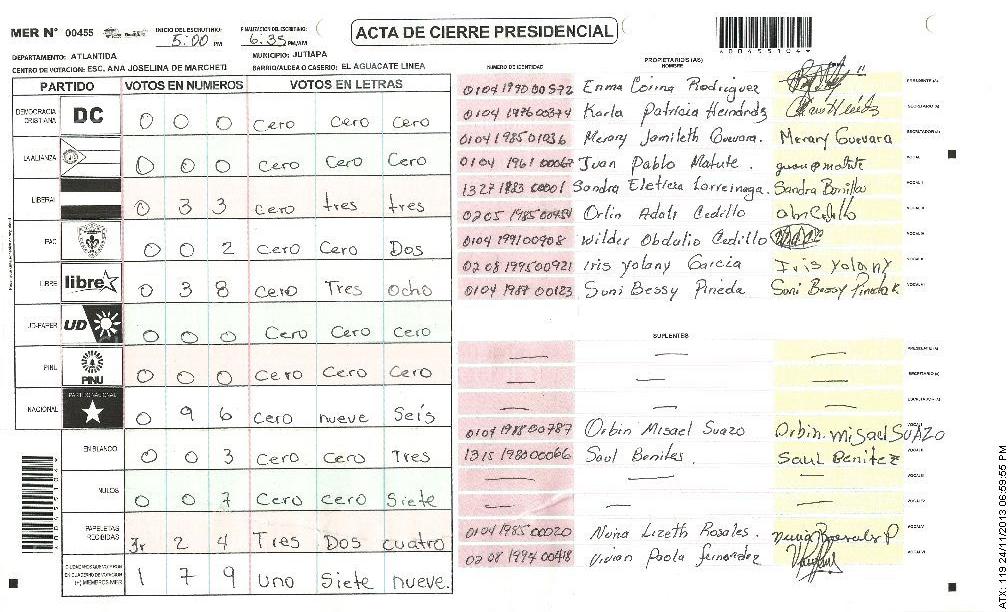 MER N° 00455 INICIO DEL ESCRUTINIO: 5:00 PM FINALIZACION DEL ESCRUTINIO: 6:35 PM/AM ACTA DE CIERRE PRESIDENCIAL
DEPARTAMENTO: ATLANTIDA MUNICIPIO: JUTIAPA
CENTRO DE VOTACION: ESC. ANA JOSELINA DE MARCHETI BARRIO/ALDEA O CASERIO: EL AGUACATE LINEA
PARTIDO VOTOS EN NUMEROS VOTOS EN LETRAS
DEMOCRACIA CRISTIANA DC 0 0 0 Cero Cero Cero
0 0 0 Cero Cero Cero
LIBERAL 0 3 3 Cero tres tres
PAC 0 0 2 Cero Cero Dos
LIBRE libre 0 3 8 Cero Tres ocho
UD-FAPER UD 0 0 0 Cero Cero Cero
PINU PINU 0 0 0 Cero Cero Cero
NACIONAL PARTIDO NACIONAL 0 9 6 Cero nueve Seis
EN BLANCO 0 0 3 Cero Cero Tres
NULOS 0 0 7 Cero cero Siete
PAPELETAS RECIBIDAS 2 4 Tres Dos cuatro
1 7 9 uno Siete nueve.
NUMERO DE IDENTIDAD PROPIETARIOS (AS) NOMBRE
0104 1990 00572 Enma Corina Rodriguez
0104 1976 00374 Karla Patricia Hernández
0104 1985 01036 Merary Jamileth Guevara. Merary Guevara
0104 1961 00067 Juan Pablo Matute.
1327 1983 00001 Sandra Eleticia Larreinaga. Sandra Bonilla
0205 1985 00484 Orlin Adali Cedillo
0104 1991 00908 Wilder Obdulio Cedillo
0208 1995 00921 Iris yolany Garcia Iris Yolany
0104 1987 00123 Suni Bessy Pineda Suni Bessy Pineda R.
SUPLENTES
0107 1988 00787 Orbin Misael Suazo Orbin misael SUAZO
1315 1980 00066 Saul Benites. SAUL Benitez
0104 1985 00020 Nuria Lizeth Rosales.
0208 1994 00418 Vivian Paola fernandez
ATX: 119 24/11/2013 06:59:55 PM